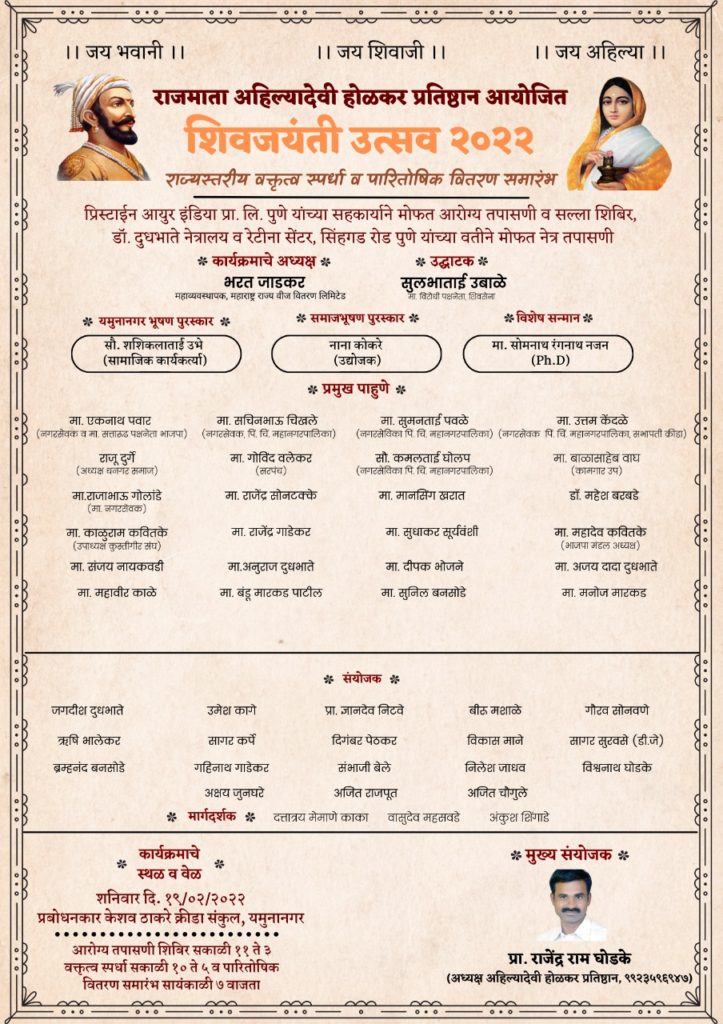 ।। जय भवानी ।। ।। जय शिवाजी ।। ।। जय अहिल्या ।।
राजमाता अहिल्यादेवी होळकर प्रतिष्ठान आयोजित
शिवजयंती उत्सव २०२२
राज्यस्तरीय वक्तृत्व स्पर्धा व पारितोषिक वितरण समारंभ
प्रिस्टाईन आयुर इंडिया प्रा. लि. पुणे यांच्या सहकार्याने मोफत आरोग्य तपासणी व सल्ला शिबिर,
डॉ. दुधभाते नेत्रालय व रेटीना सेंटर, सिंहगड रोड पुणे यांच्या वतीने मोफत नेत्र तपासणी
कार्यक्रमाचे अध्यक्ष उद्घाटक
भरत जाडकर सुलभाताई उबाळे
महाव्यवस्थापक, महाराष्ट्र राज्य वीज वितरण लिमिटेड मा. विरोधी पक्षनेता, शिवसेना
यमुनानगर भूषण पुरस्कार समाजभूषण पुरस्कार विशेष सन्मान
सौ. शशिकलाताई उभे नाना कोकरे मा. सोमनाथ रंगनाथ नजन
(सामाजिक कार्यकर्त्या) (उद्योजक) (Ph.D)
प्रमुख पाहुणे
मा. एकनाथ पवार मा. सचिनभाऊ चिखले मा. सुमनताई पवळे मा. उत्तम केंदळे
(नगरसेवक व मा. सत्तारूढ पक्षनेता भाजपा) (नगरसेवक, पि. चिं. महानगरपालिका) (नगरसेविका पि. चिं. महानगरपालिका) (नगरसेवक पि. चिं. महानगरपालिका, सभापती क्रीडा)
राजू दुर्गे मा. गोविंद वलेकर सौ. कमलताई घोलप मा. बाळासाहेब वाघ
(अध्यक्ष धनगर समाज) (सरपंच) (नगरसेविका पि. चिं. महानगरपालिका) (कामगार उप)
मा.राजाभाऊ गोलांडे मा. राजेंद्र सोनटक्के मा. मानसिंग खरात डॉ. महेश बरबडे
(मा. नगरसेवक)
मा. काळुराम कवितके मा. राजेंद्र गाडेकर मा. सुधाकर सूर्यवंशी मा. महादेव कवितके
(उपाध्यक्ष कुस्तीगीर संघ) (भाजपा मंडल अध्यक्ष)
मा. संजय नायकवडी मा.अनुराज दुधभाते मा. दीपक भोजने मा. अजय दादा दुधभाते
मा. महावीर काळे मा. बंडू मारकड पाटील मा. सुनिल बनसोडे मा. मनोज मारकड
संयोजक
जगदीश दुधभाते उमेश कागे प्रा. ज्ञानदेव निटवे बीरू मशाळे गौरव सोनवणे
ऋषि भालेकर सागर कर्पे दिगंबर पेठकर विकास माने सागर सुरवसे (डी.जे)
ब्रम्हनंद बनसोडे गहिनाथ गाडेकर संभाजी बेले निलेश जाधव विश्वनाथ घोडके
अक्षय जुनघरे अजित राजपूत अजित चौगुले
मार्गदर्शक दत्तात्रय मेमाणे काका वासुदेव महसवडे अंकुश शिंगाडे
कार्यक्रमाचे
स्थळ व वेळ
शनिवार दि. १९/०२/२०२२
प्रबोधनकार केशव ठाकरे क्रीडा संकुल, यमुनानगर
आरोग्य तपासणी शिविर सकाळी ११ ते ३
वक्तृत्व स्पर्धा सकाळी १० ते ५ व पारितोषिक
वितरण समारंभ सायंकाळी ७ वाजता
मुख्य संयोजक
प्रा. राजेंद्र राम घोडके
(अध्यक्ष अहिल्यादेवी होळकर प्रतिष्ठान, ९९२३५९६९४७)